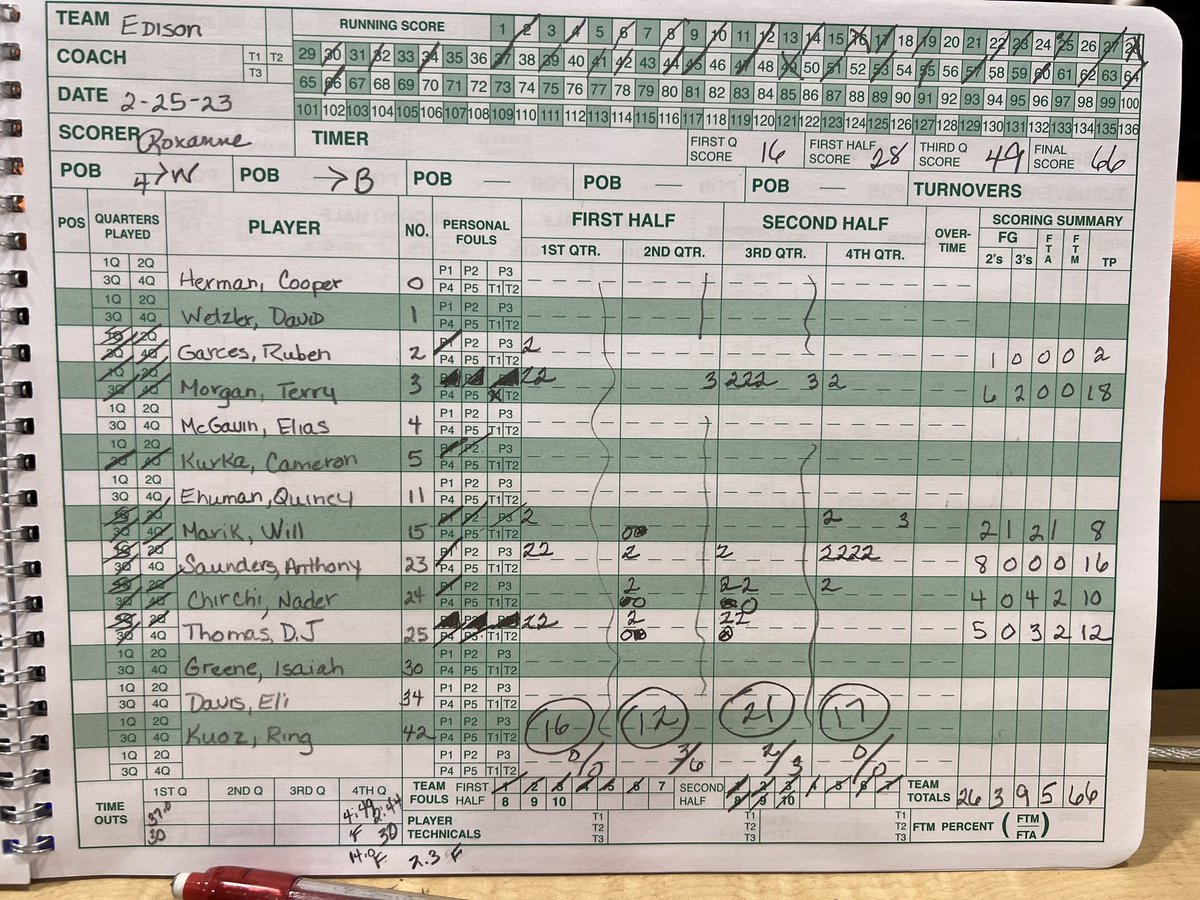 TEAM Edison
RUNNING SCORE 1 2 3 4 5 6 7 8 9 10 11 12 13 14 15 16 17 18 19 20 21 22 23 24 25 26 27 28
COACH T1 T2 T3
29 30 31 32 33 34 35 36 37 38 39 40 41 42 43 44 45 46 47 48 49 50 51 52 53 54 55 56 57 58 59 60 61 62 63 64
DATE 2-25-23
65 66 67 68 69 70 71 72 73 74 75 76 77 78 79 80 81 82 83 84 85 86 87 88 89 90 91 92 93 94 95 96 97 98 99 100
101 102 103 104 105 106 107 108 109 110 111 112 113 114 115 116 117 118 119 120 121 122 123 124 125 126 127 128 129 130 131 132 133 134 135 136
SCORER Roxanne TIMER FIRST Q SCORE 16 FIRST HALF SCORE 28 THIRD Q SCORE 49 FINAL SCORE 66
POB → W POB → B POB — POB — POB — TURNOVERS
POS QUARTERS PLAYED PLAYER NO. PERSONAL FOULS FIRST HALF SECOND HALF OVER-TIME SCORING SUMMARY
1ST QTR. 2ND QTR. 3RD QTR. 4TH QTR. FG 2's 3's FTA FTM TP
1Q 2Q 3Q 4Q Herman, Cooper 0 P1 P2 P3 P4 P5 T1 T2
1Q 2Q 3Q 4Q Wetzler, David 1 P1 P2 P3 P4 P5 T1 T2
1Q 2Q 3Q 4Q Garces, Ruben 2 P1 P2 P3 P4 P5 T1 T2 2 1 0 0 0 2
1Q 2Q 3Q 4Q Morgan, Terry 3 P4 P5 T1 T2 22 3 222 3 2 6 2 0 0 18
1Q 2Q 3Q 4Q McGavin, Elias 4 P1 P2 P3 P4 P5 T1 T2
1Q 2Q 3Q 4Q Kurka, Cameron 5 P1 P2 P3 P4 P5 T1 T2
1Q 2Q 3Q 4Q Ehuman, Quincy 11 P1 P2 P3 P4 P5 T1 T2
1Q 2Q 3Q 4Q Marik, Will 15 P1 P2 P3 P4 P5 T1 T2 2 2 3 2 1 2 1 8
1Q 2Q 3Q 4Q Saunders, Anthony 23 P1 P2 P3 P4 P5 T1 T2 22 2 2 2222 8 0 0 0 16
1Q 2Q 3Q 4Q Chirchi, Nader 24 P1 P2 P3 P4 P5 T1 T2 2 22 2 4 0 4 2 10
1Q 2Q 3Q 4Q Thomas, DJ 25 P4 P5 T1 T2 22 2 22 5 0 3 2 12
1Q 2Q 3Q 4Q Greene, Isaiah 30 P1 P2 P3 P4 P5 T1 T2
1Q 2Q 3Q 4Q Davis, Eli 34 P1 P2 P3 P4 P5 T1 T2
1Q 2Q 3Q 4Q Kuoz, Ring 42 P1 P2 P3 P4 P5 T1 T2 16 12 21 17
1Q 2Q 3Q 4Q P1 P2 P3 P4 P5 T1 T2 0/0 3/6 2/3 0/0
TIME OUTS 1ST Q 2ND Q 3RD Q 4TH Q TEAM FOULS FIRST HALF 1 2 3 4 5 6 7 8 9 10 SECOND HALF 1 2 3 4 5 6 7 8 9 10 TEAM TOTALS 26 3 9 5 66
37.0 4:49 2:44
30 F 30 PLAYER TECHNICALS T1 T2 T3 T1 T2 T3 T1 T2 T3 FTM PERCENT (FTM/FTA)
14.0 F 2.3 F